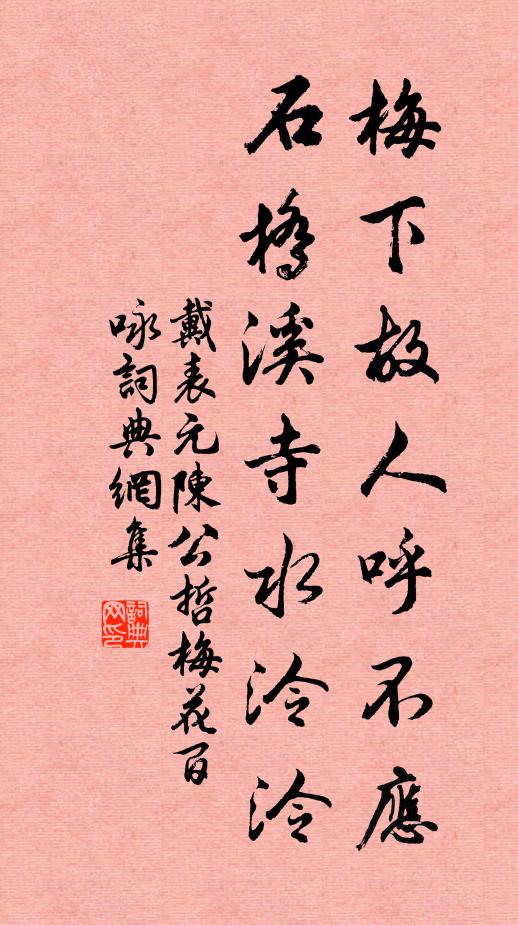 梅下故人呼不應
石橋溪寺水泠泠
戴表元陳公哲梅花百
咏詞典網集
詞典
网印